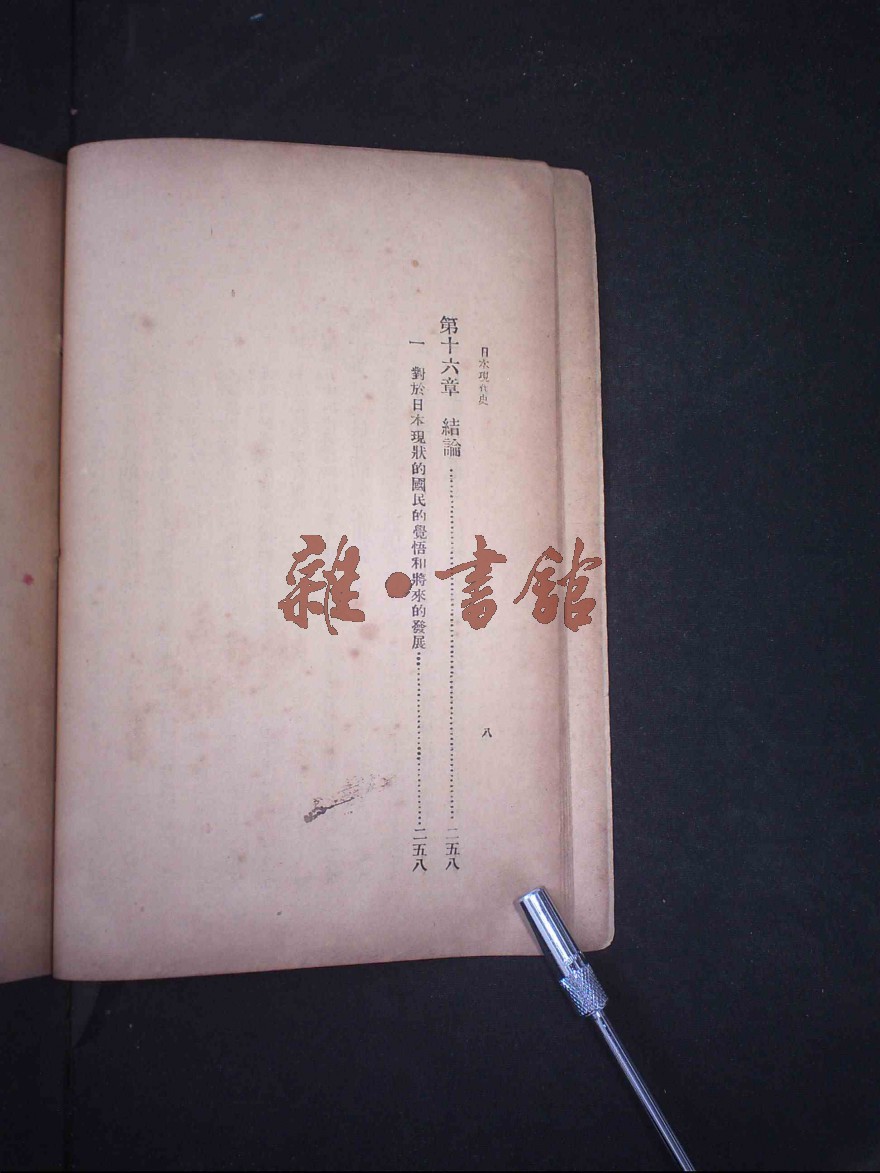 日本現代史
八
第十六章 結論………二五八
一 對於日本現狀的國民的覺悟和將來的發展………二五八
雜·書館